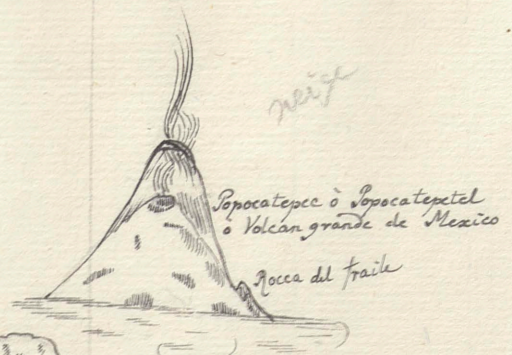 neige
Popocatepec ò Popocatepetel
ò Volcan grande de Mexico
Rocca del fraile